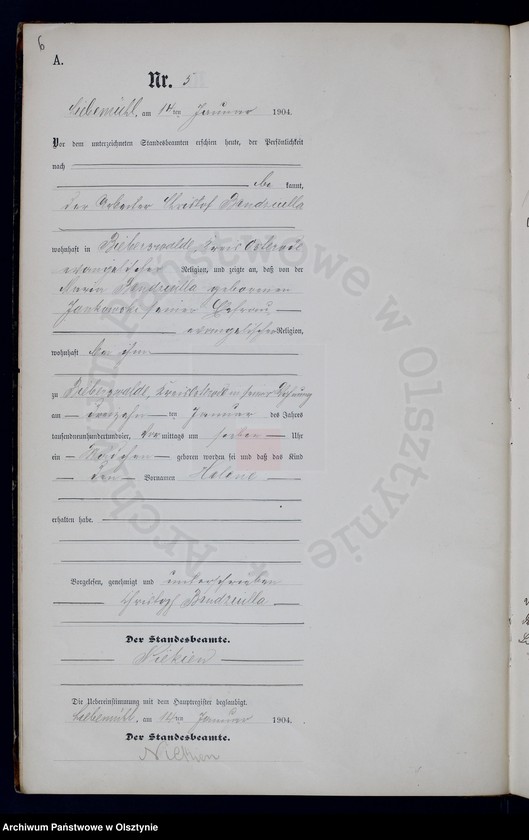 6
A.
Nr. 5
Liebemühl, am 14ten Januar 1904.
Vor dem unterzeichneten Standesbeamten erschien heute, der Persönlichkeit
nach
be kannt,
der Arbeiter Christof Bendzulla
wohnhaft in Bieberswalde, Kreis Osterode
evangelischer Religion, und zeigte an, daß von der
Maria Bendzulla geborenen
seiner Ehefrau
evangelischer Religion,
wohnhaft bei ihm
zu Bieberswalde, Kreis Osterode in seiner Wohnung
am dreizehnten Januar des Jahres
tausendneunhundertundvier, Vormittags um sieben Uhr
ein Mädchen geboren worden sei und daß das Kind
den Vornamen Helene
erhalten habe.
Vorgelesen, genehmigt und unterschrieben
Christoph Bendzulla
Der Standesbeamte.
Die Uebereinstimmung mit dem Hauptregister beglaubigt.
Liebemühl, am 14ten Januar 1904.
Der Standesbeamte.
Archiwum Państwowe w Olsztynie
Archiwum Państwowe w Olsztynie